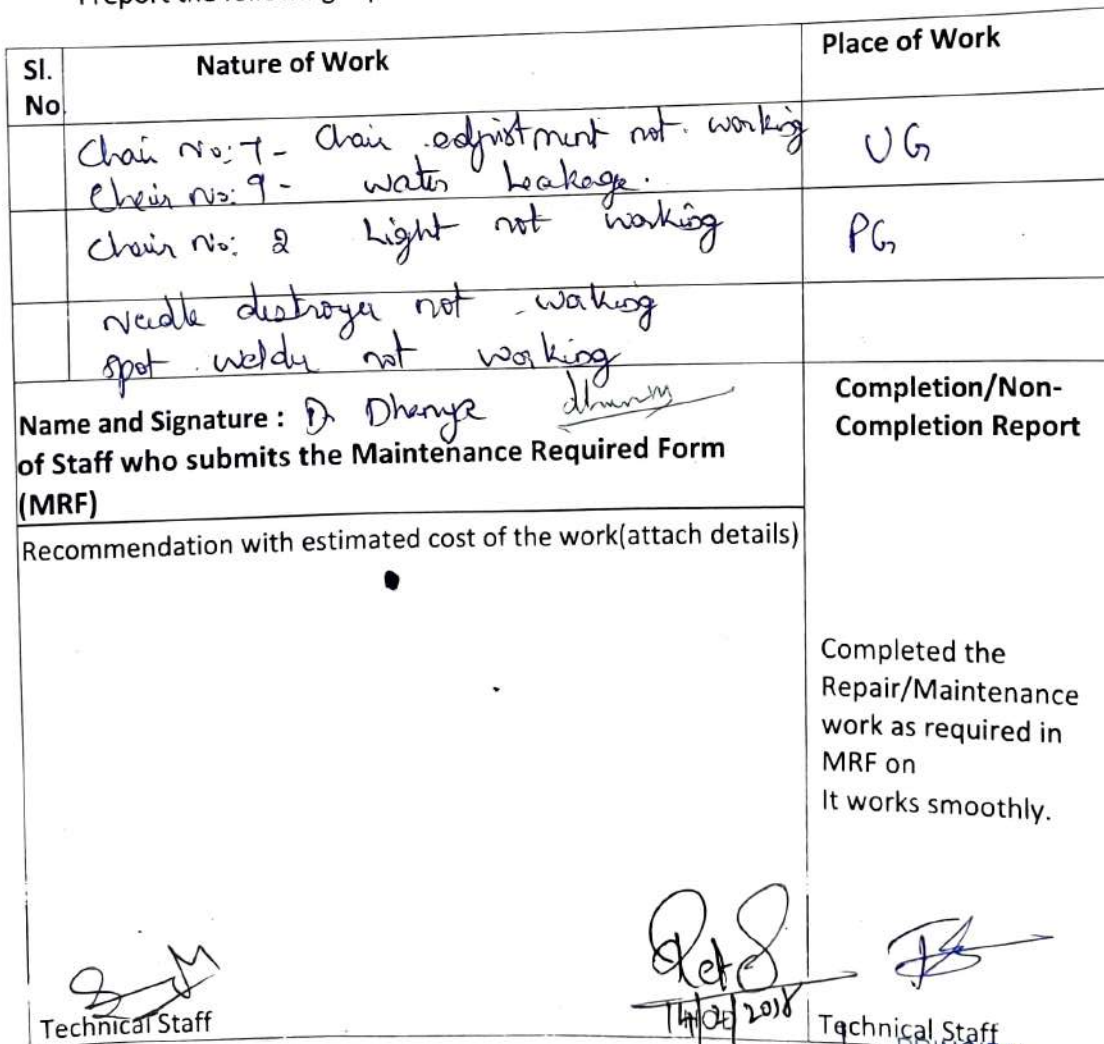 Sl. No Nature of Work Place of Work
Chair No: 7 - Chair adjustment not working UG
Chair No: 9 - water Leakage.
Chair No: 2 Light not working PG
Needle destroyer not working
spot welder not working
Name and Signature : Dr Dhanya
of Staff who submits the Maintenance Required Form
(MRF)
Completion/Non-
Completion Report
Recommendation with estimated cost of the work(attach details)
Completed the
Repair/Maintenance
work as required in
MRF on
It works smoothly.
Technical Staff
2018
Technical Staff